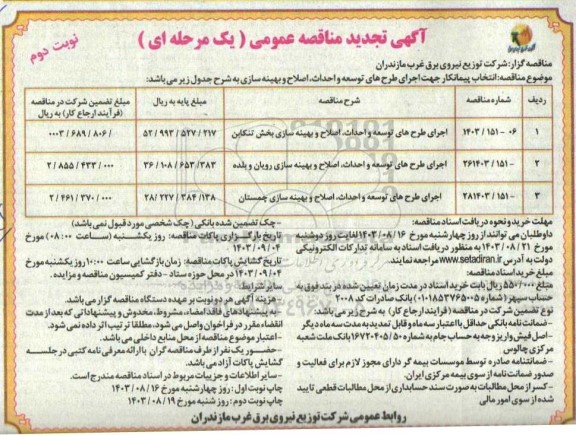 آگهی تجدید مناقصه عمومی ( یک مرحله ای )
نوبت دوم
مناقصه گزار: شرکت توزیع نیروی برق غرب مازندران
موضوع مناقصه: انتخاب پیمانکار جهت اجرای طرح های توسعه و احداث، اصلاح و بهینه سازی به شرح جدول زیر می باشد:
ردیف شماره مناقصه شرح مناقصه مبلغ پایه به ریال مبلغ تضمین شرکت در مناقصه (فرآیند ارجاع کار) به ریال
۱ ۰۶ - ۱۵۱ / ۱۴۰۳ اجرای طرح های توسعه و احداث، اصلاح و بهینه سازی بخش تنکابن ۵۲ / ۹۹۳ / ۵۲۷ / ۲۱۷ ۰۰۰۳ / ۶۸۹ / ۸۰۶ /
۲ ۲۶۱۴۰۳ / ۱۵۱ - اجرای طرح های توسعه و احداث، اصلاح و بهینه سازی رویان و بلده ۳۶ / ۱۰۸ / ۶۵۳ / ۳۸۳ ۲ / ۸۵۵ / ۴۳۳ / ۰۰۰
۳ ۲۸۱۴۰۳ / ۱۵۱ - اجرای طرح های توسعه و احداث، اصلاح و بهینه سازی چمستان ۲۸/ ۲۲۷ / ۳۸۴ / ۱۳۸ ۲ / ۴۶۱ / ۳۷۰ / ۰۰۰
مهلت خرید و نحوه دریافت اسناد مناقصه:
داوطلبان می توانند از روز چهارشنبه مورخ ۱۶ / ۰۸ / ۱۴۰۳ لغایت روز دوشنبه
مورخ ۲۱ / ۰۸ / ۱۴۰۳ به منظور دریافت اسناد به سامانه تدارکات الکترونیکی
دولت به آدرس www.setadiran.ir مراجعه نمایند.
مبلغ خرید اسناد مناقصه:
مبلغ ۵۵۰/۰۰۰ ریال بابت خرید اسناد در مدت زمان تعیین شده در بند فوق به
حساب سپهر (شماره ۰۱۰۱۸۵۳۷۶۵۰۰۵) بانک صادرات کد ۲۰۰۸
نوع تضمین شرکت در مناقصه (فرایند ارجاع کار) به شرح زیر می باشد:
- ضمانت نامه بانکی حداقل با اعتبار سه ماه و قابل تمدید به مدت سه ماه دیگر
- اصل فیش واریز وجه به حساب جام به شماره ۱۶۷۲۰۴۰۵/۵۰ بانک ملت شعبه
مرکزی چالوس
- ضمانتنامه صادره توسط موسسات بیمه گر دارای مجوز لازم برای فعالیت و
صدور ضمانت نامه از سوی بیمه مرکزی ایران.
- کسر از محل مطالبات به صورت سند حسابداری از محل مطالبات قطعی تایید
شده از سوی امور مالی
- چک تضمین شده بانکی (چک شخصی مورد قبول نمی باشد)
تاریخ بازگزاری پاکات مناقصه: روز یکشنبه (ساعت ۰۸:۰۰) مورخ
۰۴ / ۰۹ / ۱۴۰۳
تاریخ گشایش پاکات مناقصه: زمان بازگشایی ساعت ۱۰:۰۰ روز یکشنبه مورخ
۰۴ / ۰۹ / ۱۴۰۳ در محل حوزه ستاد - دفتر کمیسیون مناقصه و مزایده.
سایر شرایط:
- هزینه آگهی هر دو نوبت بر عهده دستگاه مناقصه گزار می باشد.
- به پیشنهادهای فاقد امضاء، مشروط، مخدوش و پیشنهاداتی که بعد از مدت
انقضاء مقرر در فراخوان واصل می شود، مطلقا ترتیب اثر داده نمی شود.
- اعتبار موضوع مناقصه از محل منابع داخلی می باشد.
- حضور یک نفر از طرف مناقصه گران با ارائه معرفی نامه کتبی در جلسه
گشایش پاکات آزاد می باشد.
- سایر اطلاعات و جزییات مربوط در اسناد مناقصه مندرج است.
چاپ نوبت اول: روز چهارشنبه مورخ ۱۶ / ۰۸ / ۱۴۰۳
چاپ نوبت دوم: روز شنبه مورخ ۱۹ / ۰۸ / ۱۴۰۳
روابط عمومی شرکت توزیع نیروی برق غرب مازندران